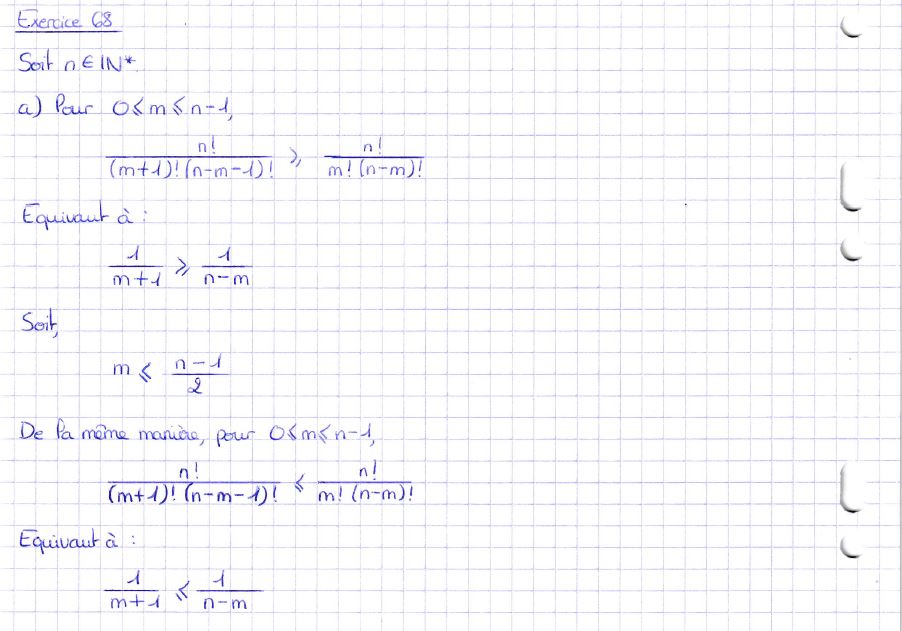 Exercice 68
Soit n ∈ IN*
a) Pour 0 ⩽ m ⩽ n-1,
n! / ((m+1)! (n-m-1)!) ⩾ n! / (m! (n-m)!)
Equivaut à :
1 / (m+1) ⩾ 1 / (n-m)
Soit,
m ⩽ (n-1) / 2
De la même manière, pour 0 ⩽ m ⩽ n-1,
n! / ((m+1)! (n-m-1)!) ⩽ n! / (m! (n-m)!)
Equivaut à :
1 / (m+1) ⩽ 1 / (n-m)